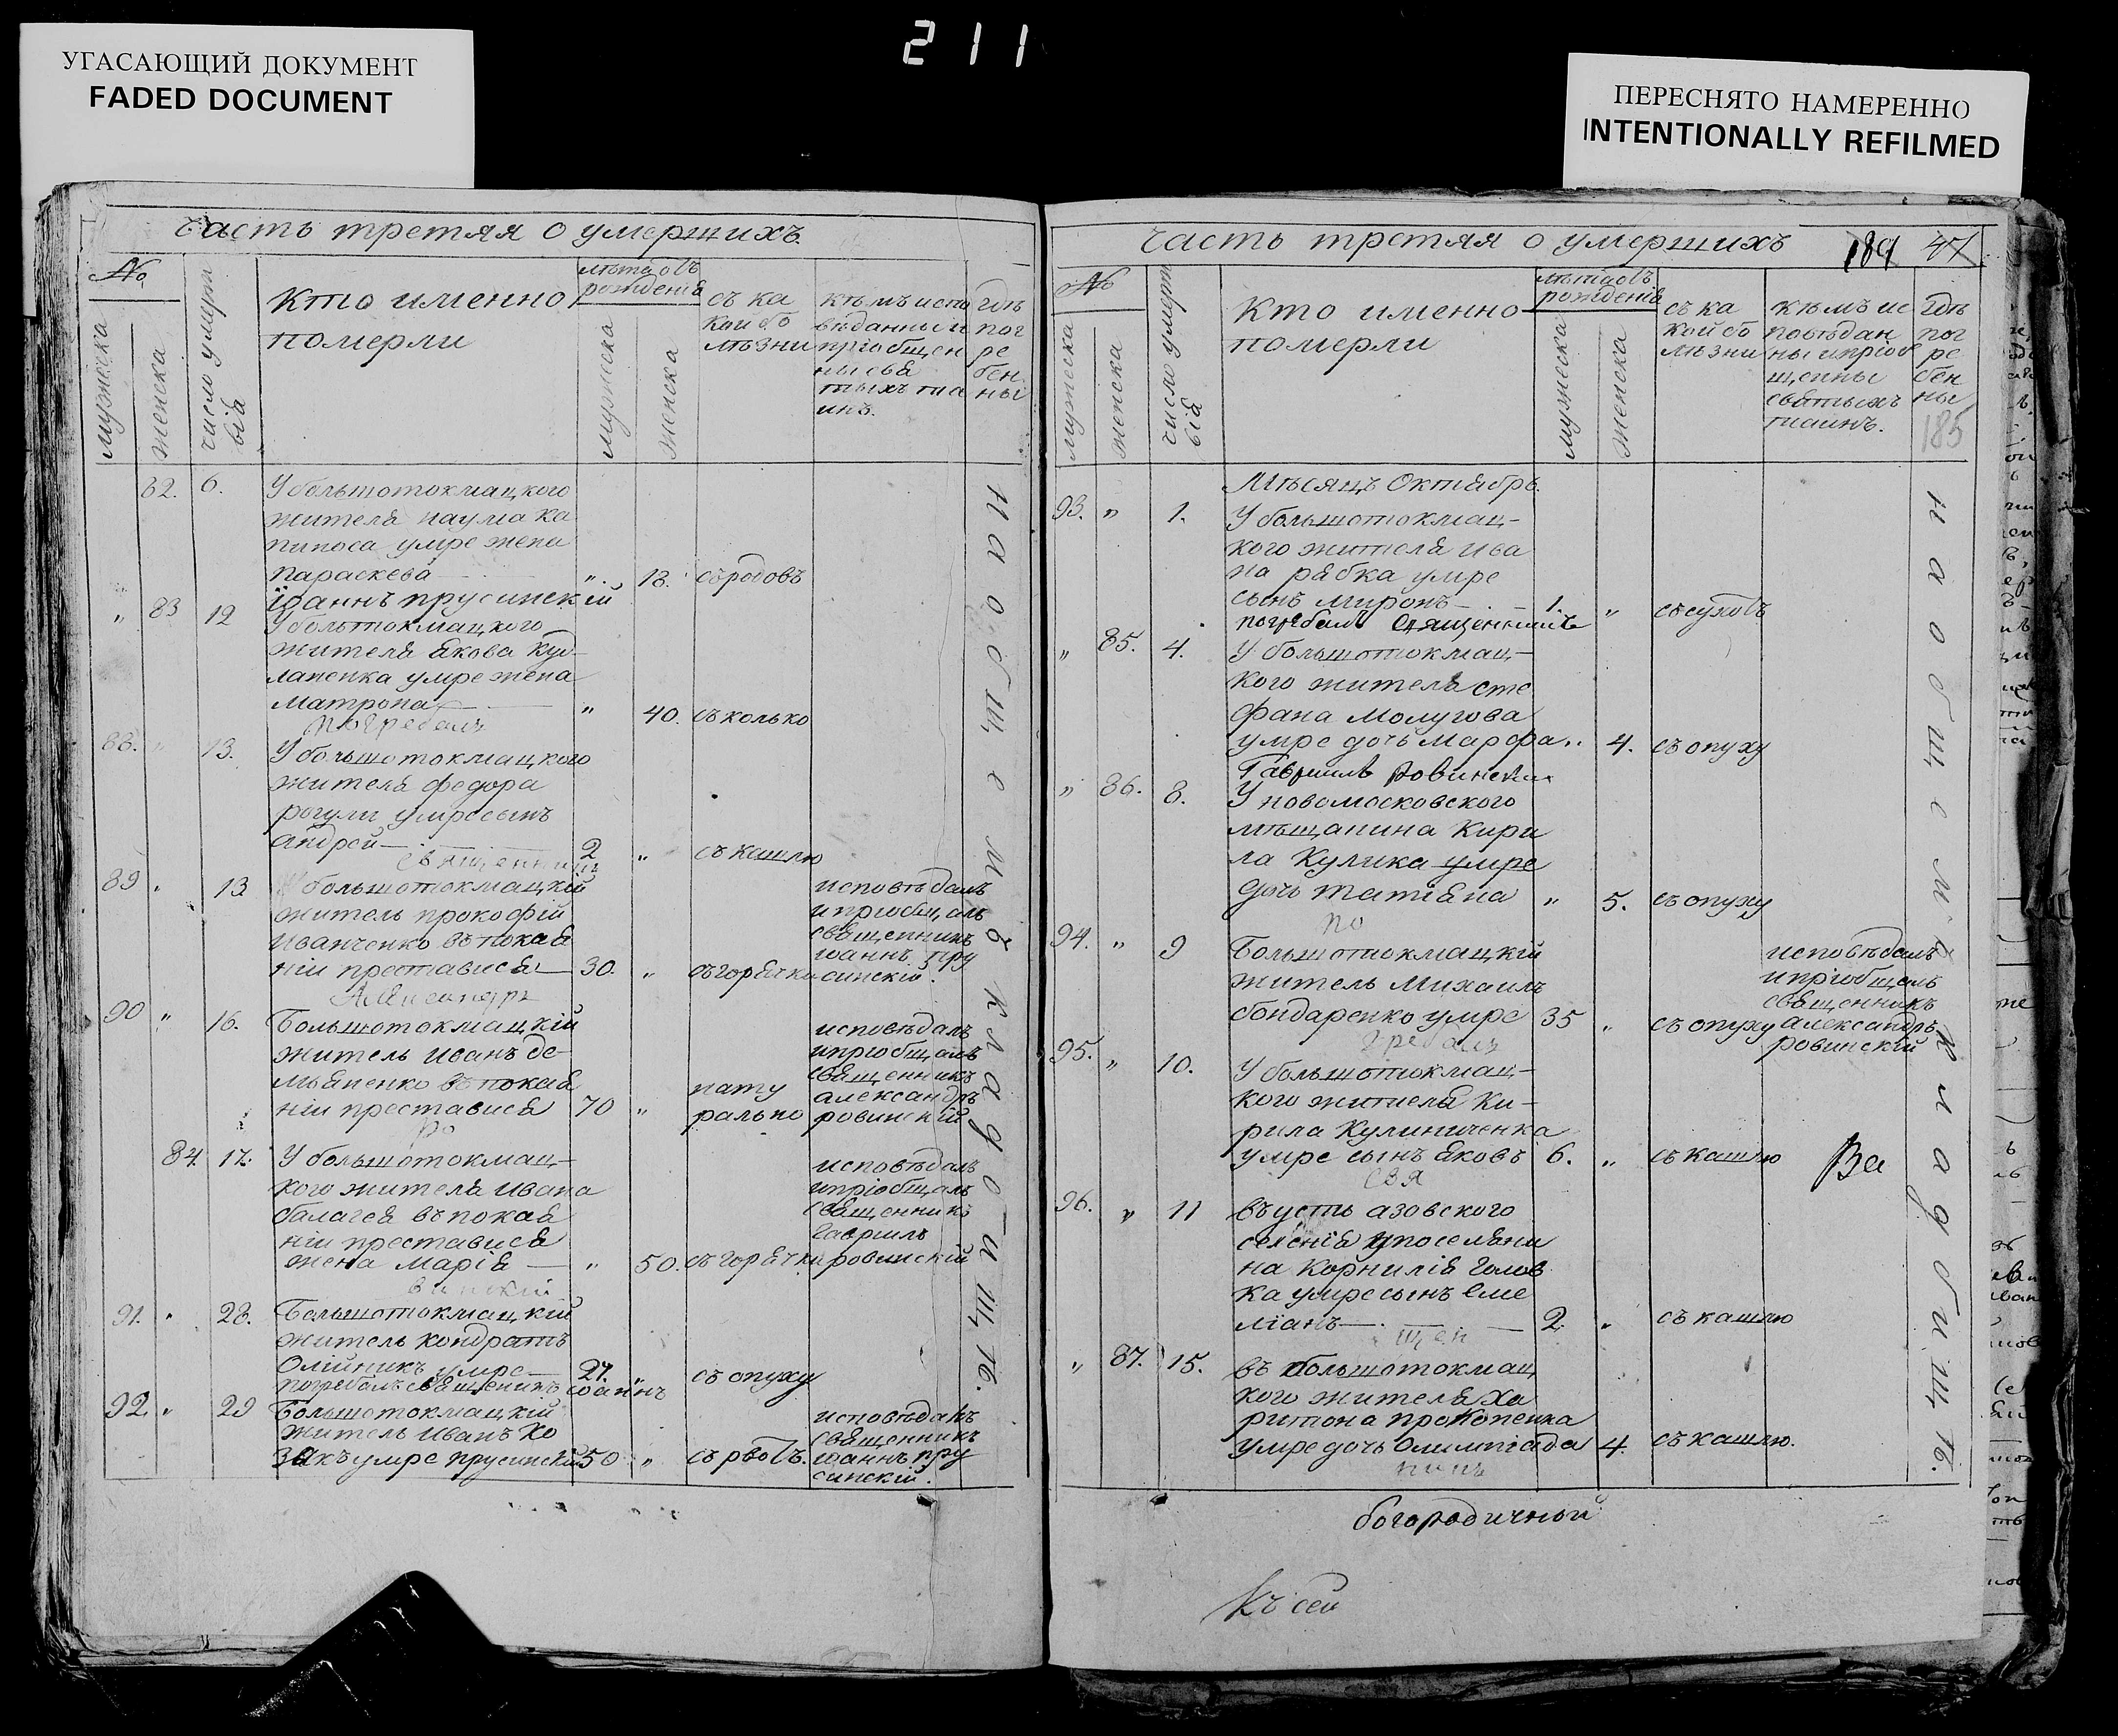 211
УГАСАЮЩИЙ ДОКУМЕНТ
FADED DOCUMENT
ПЕРЕСНЯТО НАМЕРЕННО
INTENTIONALLY REFILMED
Часть третяя о умершихъ
№
мужеска
женска
число умерт
вія
Кто именно
померли
лѣта отъ
рожденія
мужеска
женска
съ ка
кой бо
лѣзни
кѣмъ испо
вѣданны и
пріобщен
ны свя
тыхъ та
инъ.
гдѣ
пог
ре
бен
ны
82. 6. У большотокмацкого
жителя наума ка
пиноса умре жена
параскева „ 18. съ родовъ
іоаннъ прусинскій
„ 83 12 У больтокмацкого
жителя якова куд
ланенка умре жена
матрона „ 40. съ колько
погребалъ
88. „ 13. У большотокмацкого
жителя федора
рогули умре сынъ
андрей 2 „ съ кашлю
священникъ
89 „ 13 большотокмацкій
житель прокофій
иванченко въ покая
ніи преставися 30. „ съ горячки
исповѣдалъ
и пріобщалъ
священникъ
іоаннъ пру
синскій.
Александръ
90 „ 16. Большотокмацкій
житель иванъ де-
мьяненко въ покая
ніи преставися 70 „ нату
рально
исповѣдалъ
и пріобщалъ
священникъ
александръ
ровинскій
ро
84. 17. У большотокмац-
кого жителя ивана
балагея въ покая
ніи преставися
жена марія „ 50. съ горячки
исповѣдалъ
и пріобщалъ
священникъ
гавріилъ
ровинскій
винскій
91. „ 28. Большотокмацкій
житель кондратъ
Олійникъ умре 27. „ съ опуху
погребалъ священикъ іоаннъ
92. „ 29 Большотокмацкій
житель иванъ ко
закъ умре прусинскій 50 „ съ рвотъ.
исповѣдалъ
священникъ
іоаннъ пру
синскій.
на общемъ кладбищѣ.
Часть третяя о умершихъ
189 47
№
мужеска
женска
число умерт
вія
Кто именно
померли
лѣта отъ
рожденія
мужеска
женска
съ ка
кой бо
лѣзни
кѣмъ ис
повѣдан
ны и пріоб
щенны
святыхъ
таинъ.
гдѣ
пог
ре
бен
ны
185
Мѣсяцъ Октябрь.
93. „ 1. У большотокмац-
кого жителя ива
на рябка умре
сынъ миронъ 1. „ съ сухотъ
погребалъ Священникъ
„ 85. 4. У большотокмац-
кого жителя сте
фана Молугова
умре дочь марфа „ 4. съ опуху
Гавріилъ Ровинскій
„ 86. 8. У новомосковского
мѣщанина Кири
ла Кулика умре
дочь татіана „ 5. съ опуху
по
94. „ 9 Большотокмацкій
житель Михаилъ
бондаренко умре 35 „ съ опуху
исповѣдалъ
и пріобщалъ
священникъ
александръ
ровинскій
гребалъ
95. „ 10. У большотокмац-
кого жителя Ки-
рила Кулиниченка
умре сынъ яковъ 6. „ съ кашлю
Ва
свя
96. „ 11 въ усть азовского
селенія у поселяни
на Корнилія Голов
ка умре сынъ еме
ліанъ 2. „ съ кашлю
щен
„ 87. 15. въ большотокмац
кого жителя ха
ритона прокопенка
умре дочь олимпіада 4. съ кашлю.
никъ
на общемъ кладбищѣ.
богородичной
Къ сей